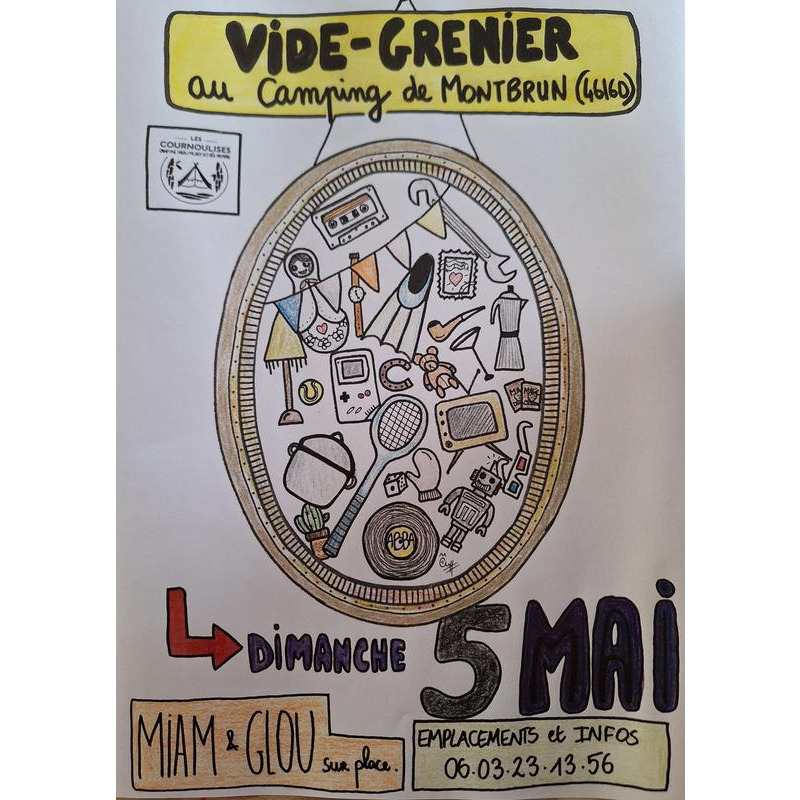 VIDE-GRENIER
au Camping de MONTBRUN (46160)
LES
COURNOULISES
ABBA
DIMANCHE 5 MAI
MIAM & GLOU sur place.
EMPLACEMENTS et INFOS
06.03.23.13.56